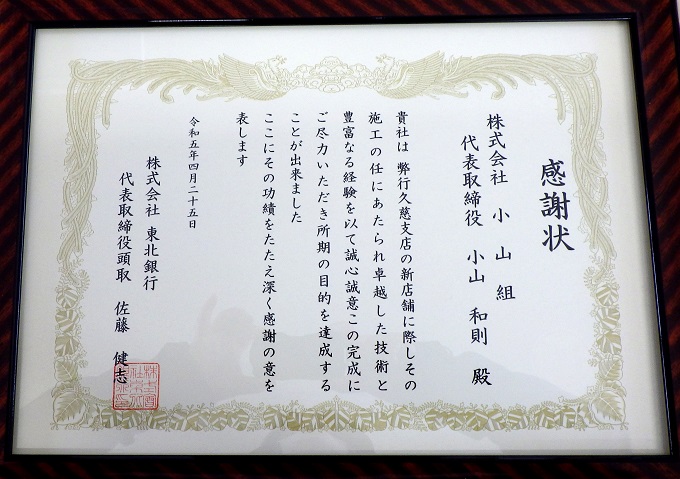 感謝状
株式会社 小山組
代表取締役 小山 和則 殿
貴社は 弊行久慈支店の新店舗に際しその
施工の任にあたられ卓越した技術と
豊富なる経験を以て誠心誠意この完成に
ご尽力いただき所期の目的を達成する
ことが出来ました
ここにその功績をたたえ深く感謝の意を
表します
令和五年四月二十五日
株式会社 東北銀行
代表取締役頭取 佐藤 健志